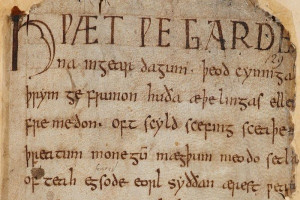 HǷÆT ǷE GARDE
129
na ingear dagum. þeod cyninga
þrym ge frunon huða æþelingas elle
fremedon. oft scyld scefing sceaþe
þreatum monegū mægþum meodo setl
of teah egsode eorl syððan ærest ƿea